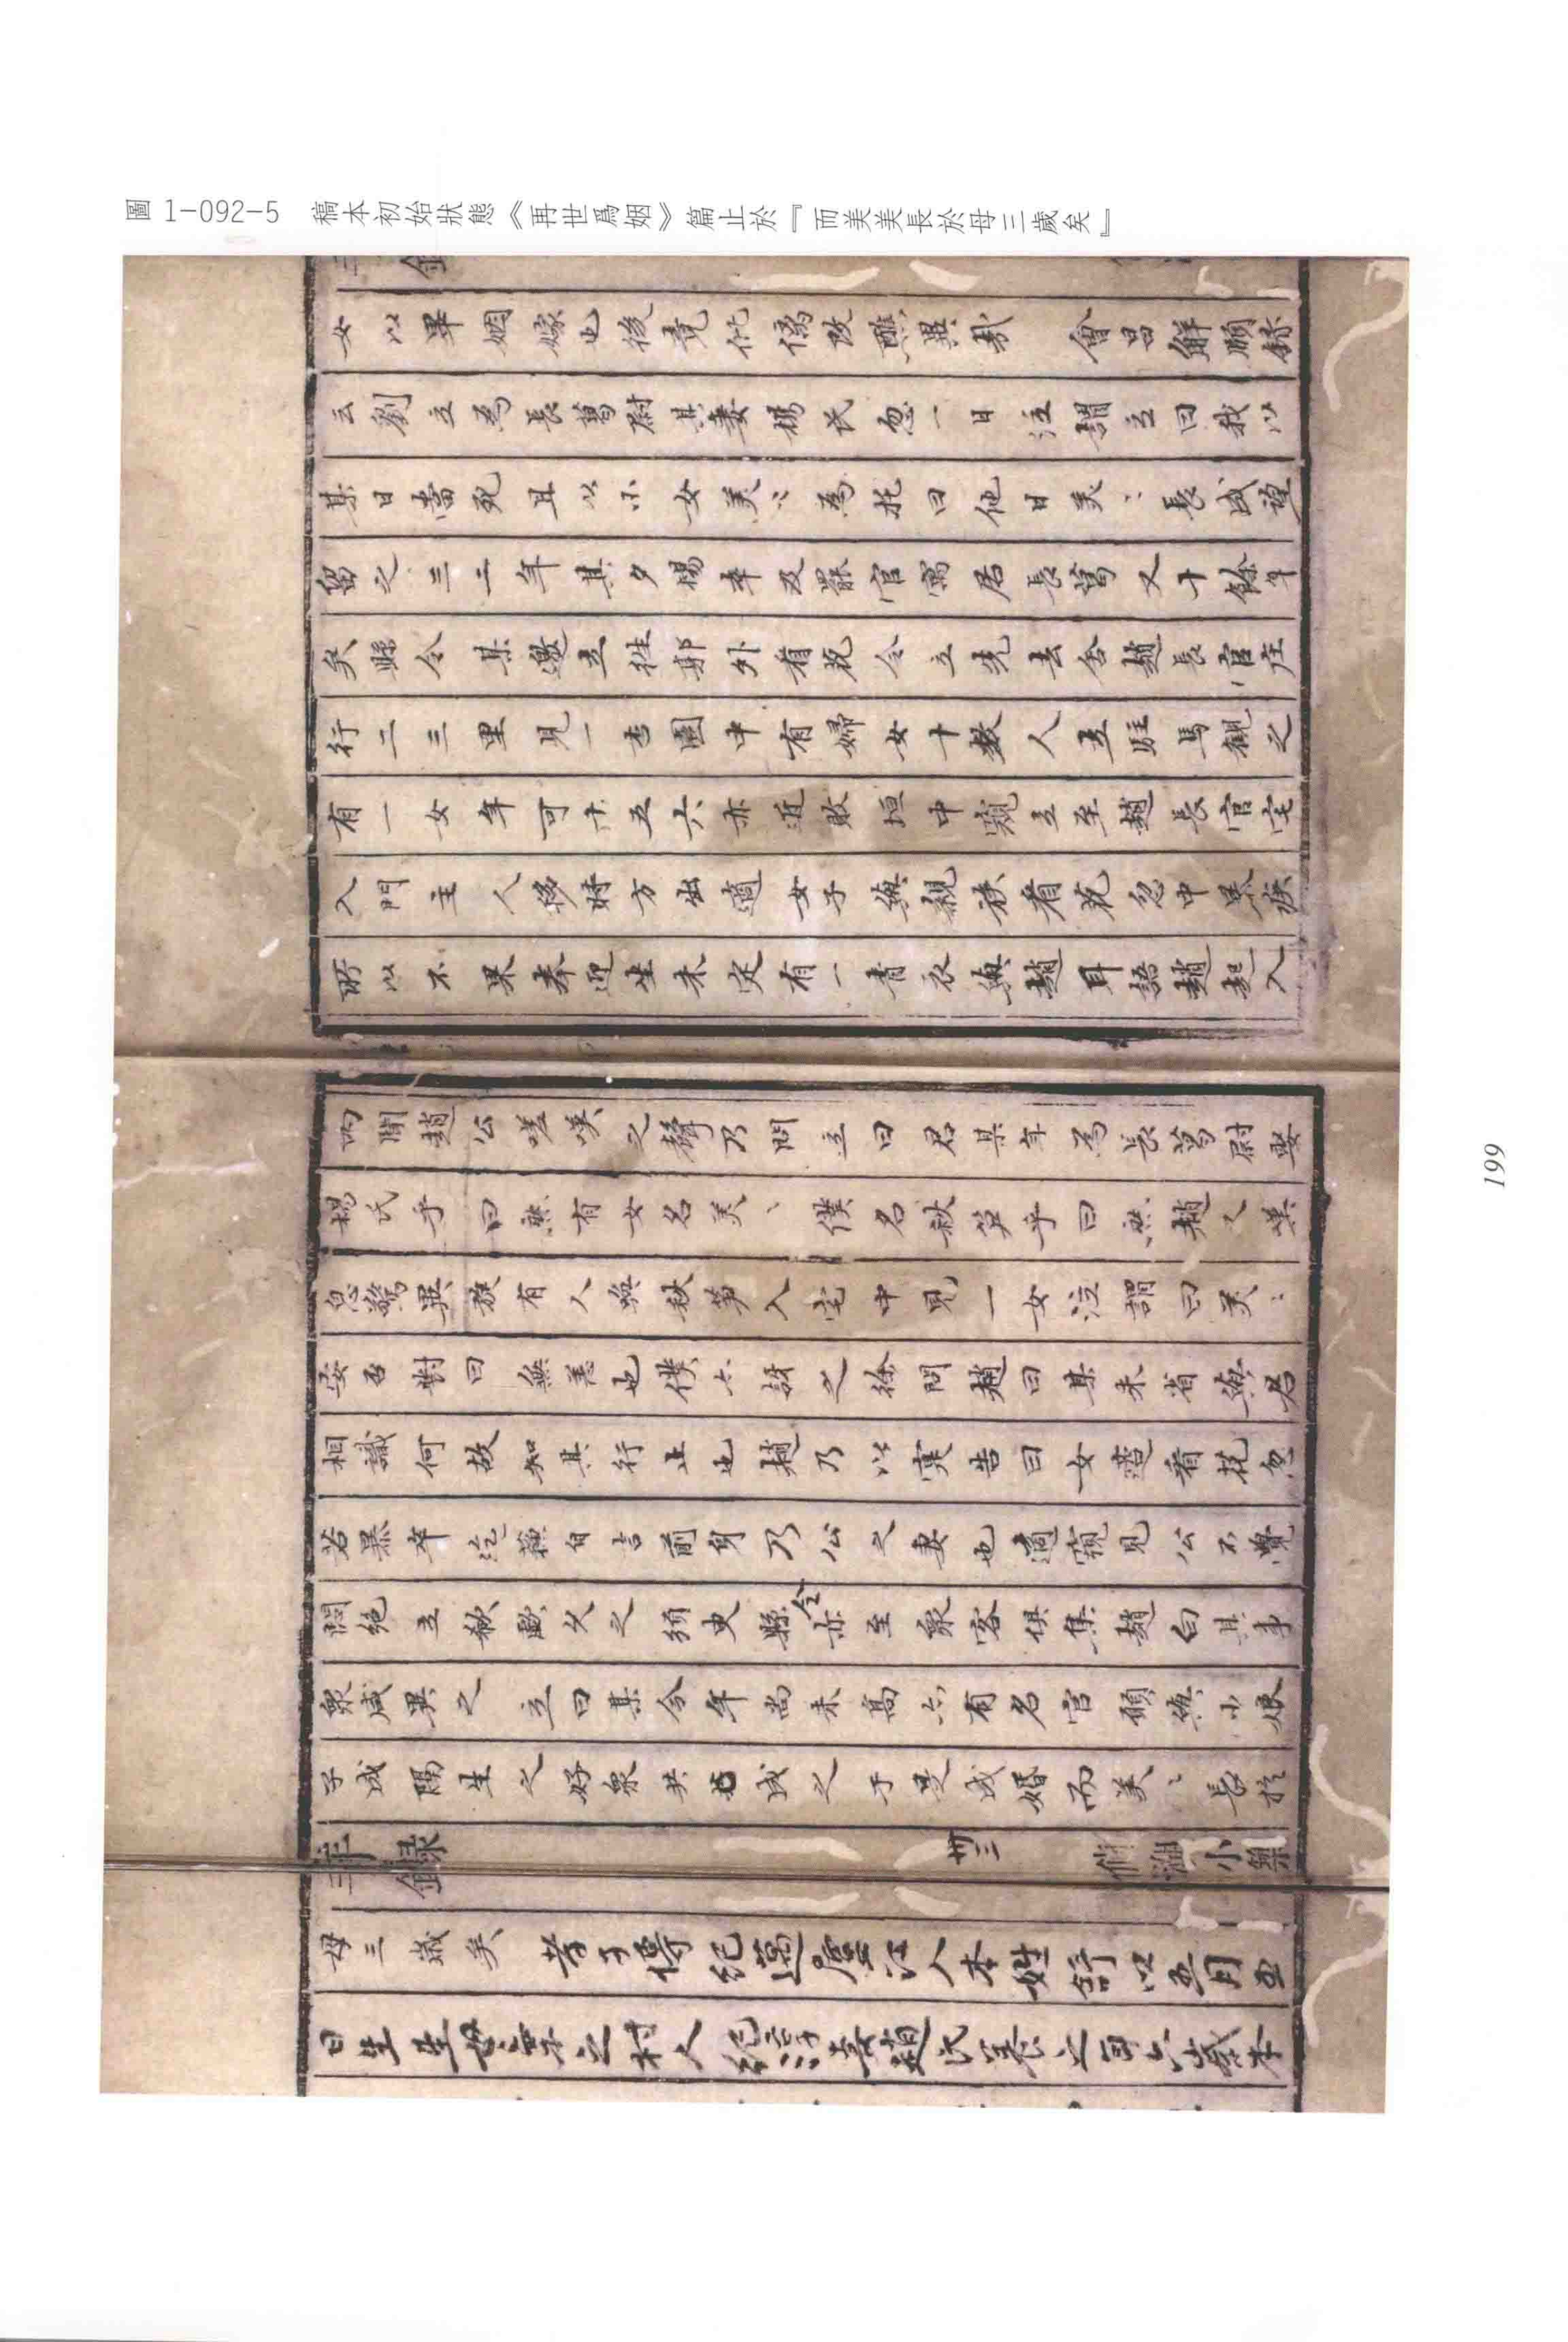 圖 1-092-5　稿本初始狀態《再世爲姻》篇止於『而美美長於母三歲矣』
女以畢姻嫁也後竟仳儷改醮異哉　會昌解頤錄
云劉立為長葛尉其妻楊氏忽一日泣謂立曰我以
某日當死且以小女美〻為托曰他日美〻長成望
留之三二年其夕楊卒及罷官寓居長葛又十餘年
矣縣令某邀立往郭外看花令立先去舍趙長官庄
行二三里見一杏園中有婦女十數人立駐馬觀之
有一女年可十五六亦近敗垣中窺立至趙長官宅
入門主人移時方出適女子與親族看花忽中暴疾
所以不果奉迎坐未定有一青衣與趙耳語趙起入
內聞趙公嗟嘆之聲乃問立曰君某年為長葛尉娶
楊氏乎曰然有女名美〻僕名秋笋乎曰然趙又嘆
息驚異旋有人喚秋笋入宅中見一女泣謂曰美〻
安否對曰無恙也僕亦訝之徐問趙曰某未省與君
相識何故知其行止也趙乃以實告曰女適看花忽
若暴卒訖蘇自言前身乃公之妻也適窺見公不覺
悶絕立歔歔久之須臾縣令亦至衆客俱集趙白其事
衆咸異之　立曰某今年尚未高亦有名官願與小娘
子成隔生之好衆共成之于是成婚而美〻長於
三年錄　卅三
母三歲矣　孝子傳紀邁廬江人本姓舒以五月五
日生生母棄之村人紀淳妻趙氏養之年六歲本
199